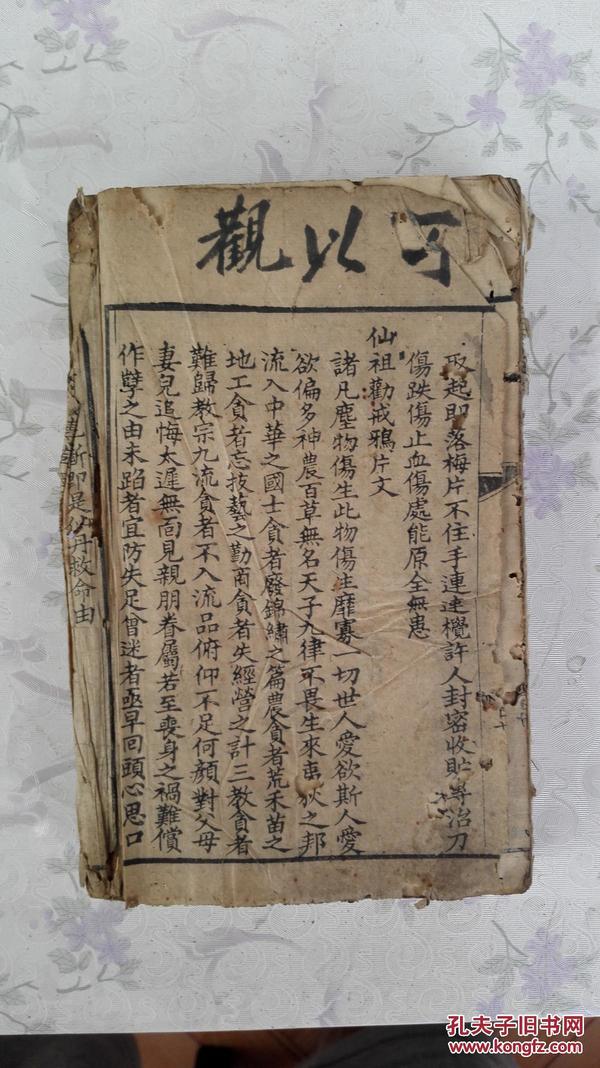 可以觀
取起即落梅片不住手連連攪許人封密收貯專治刀
傷跌傷止血傷處能原全無患
仙祖勸戒鴉片文
諸凡塵物傷生此物傷生靡寡一切世人愛欲斯人愛
欲偏多神農百草無名天子九律不畏生來夷狄之邦
流入中華之國士貪者廢錦繡之篇農貪者荒禾苗之
地工貪者忘技藝之勤商貪者失經營之計三教貪者
難歸教宗九流貪者不入流品俯仰不足何顏對父母
妻兒追悔太遲無面見親朋眷屬若至喪身之禍難償
作孽之由未蹈者宜防失足曾迷者亟早回頭心思口
斷即是仙丹救命由
孔夫子旧书网
www.kongfz.com